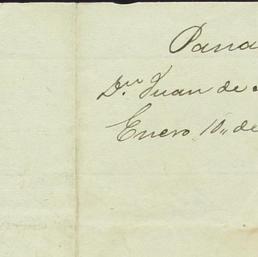 Pana
Dn Juan de
Enero 10,, de